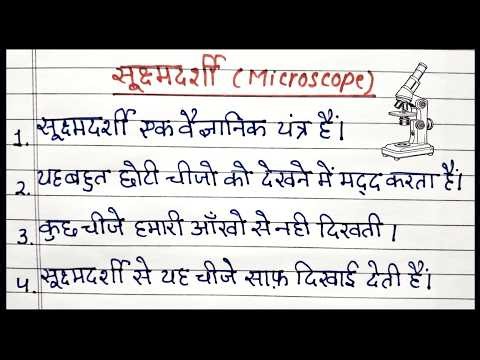 सूक्ष्मदर्शी (Microscope)
1. सूक्ष्मदर्शी एक वैज्ञानिक यंत्र हैं।
2. यह बहुत छोटी चीजो को देखने में मद्द करता हैं।
3. कुछ चीजे हमारी आँखो से नही दिखती।
4. सूक्ष्मदर्शी से यह चीजे साफ़ दिखाई देती हैं।